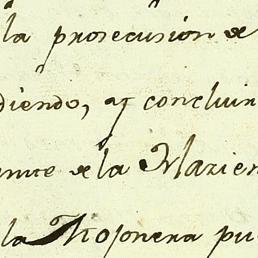 la prosecusion de
diendo, q concluir
de la Hazien
la Mojonera pu